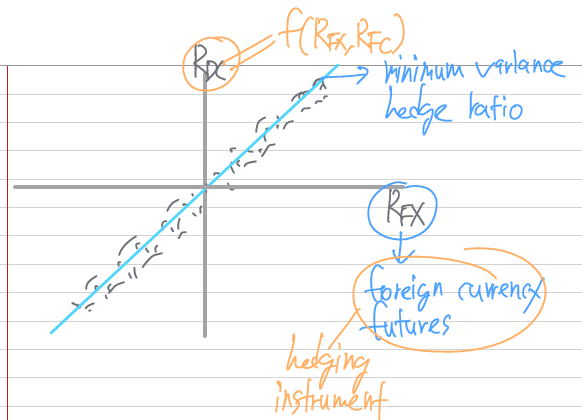 R_DC = f(R_FX, R_FC)
minimum variance
hedge ratio
R_FX
foreign currency
futures
hedging
instrument